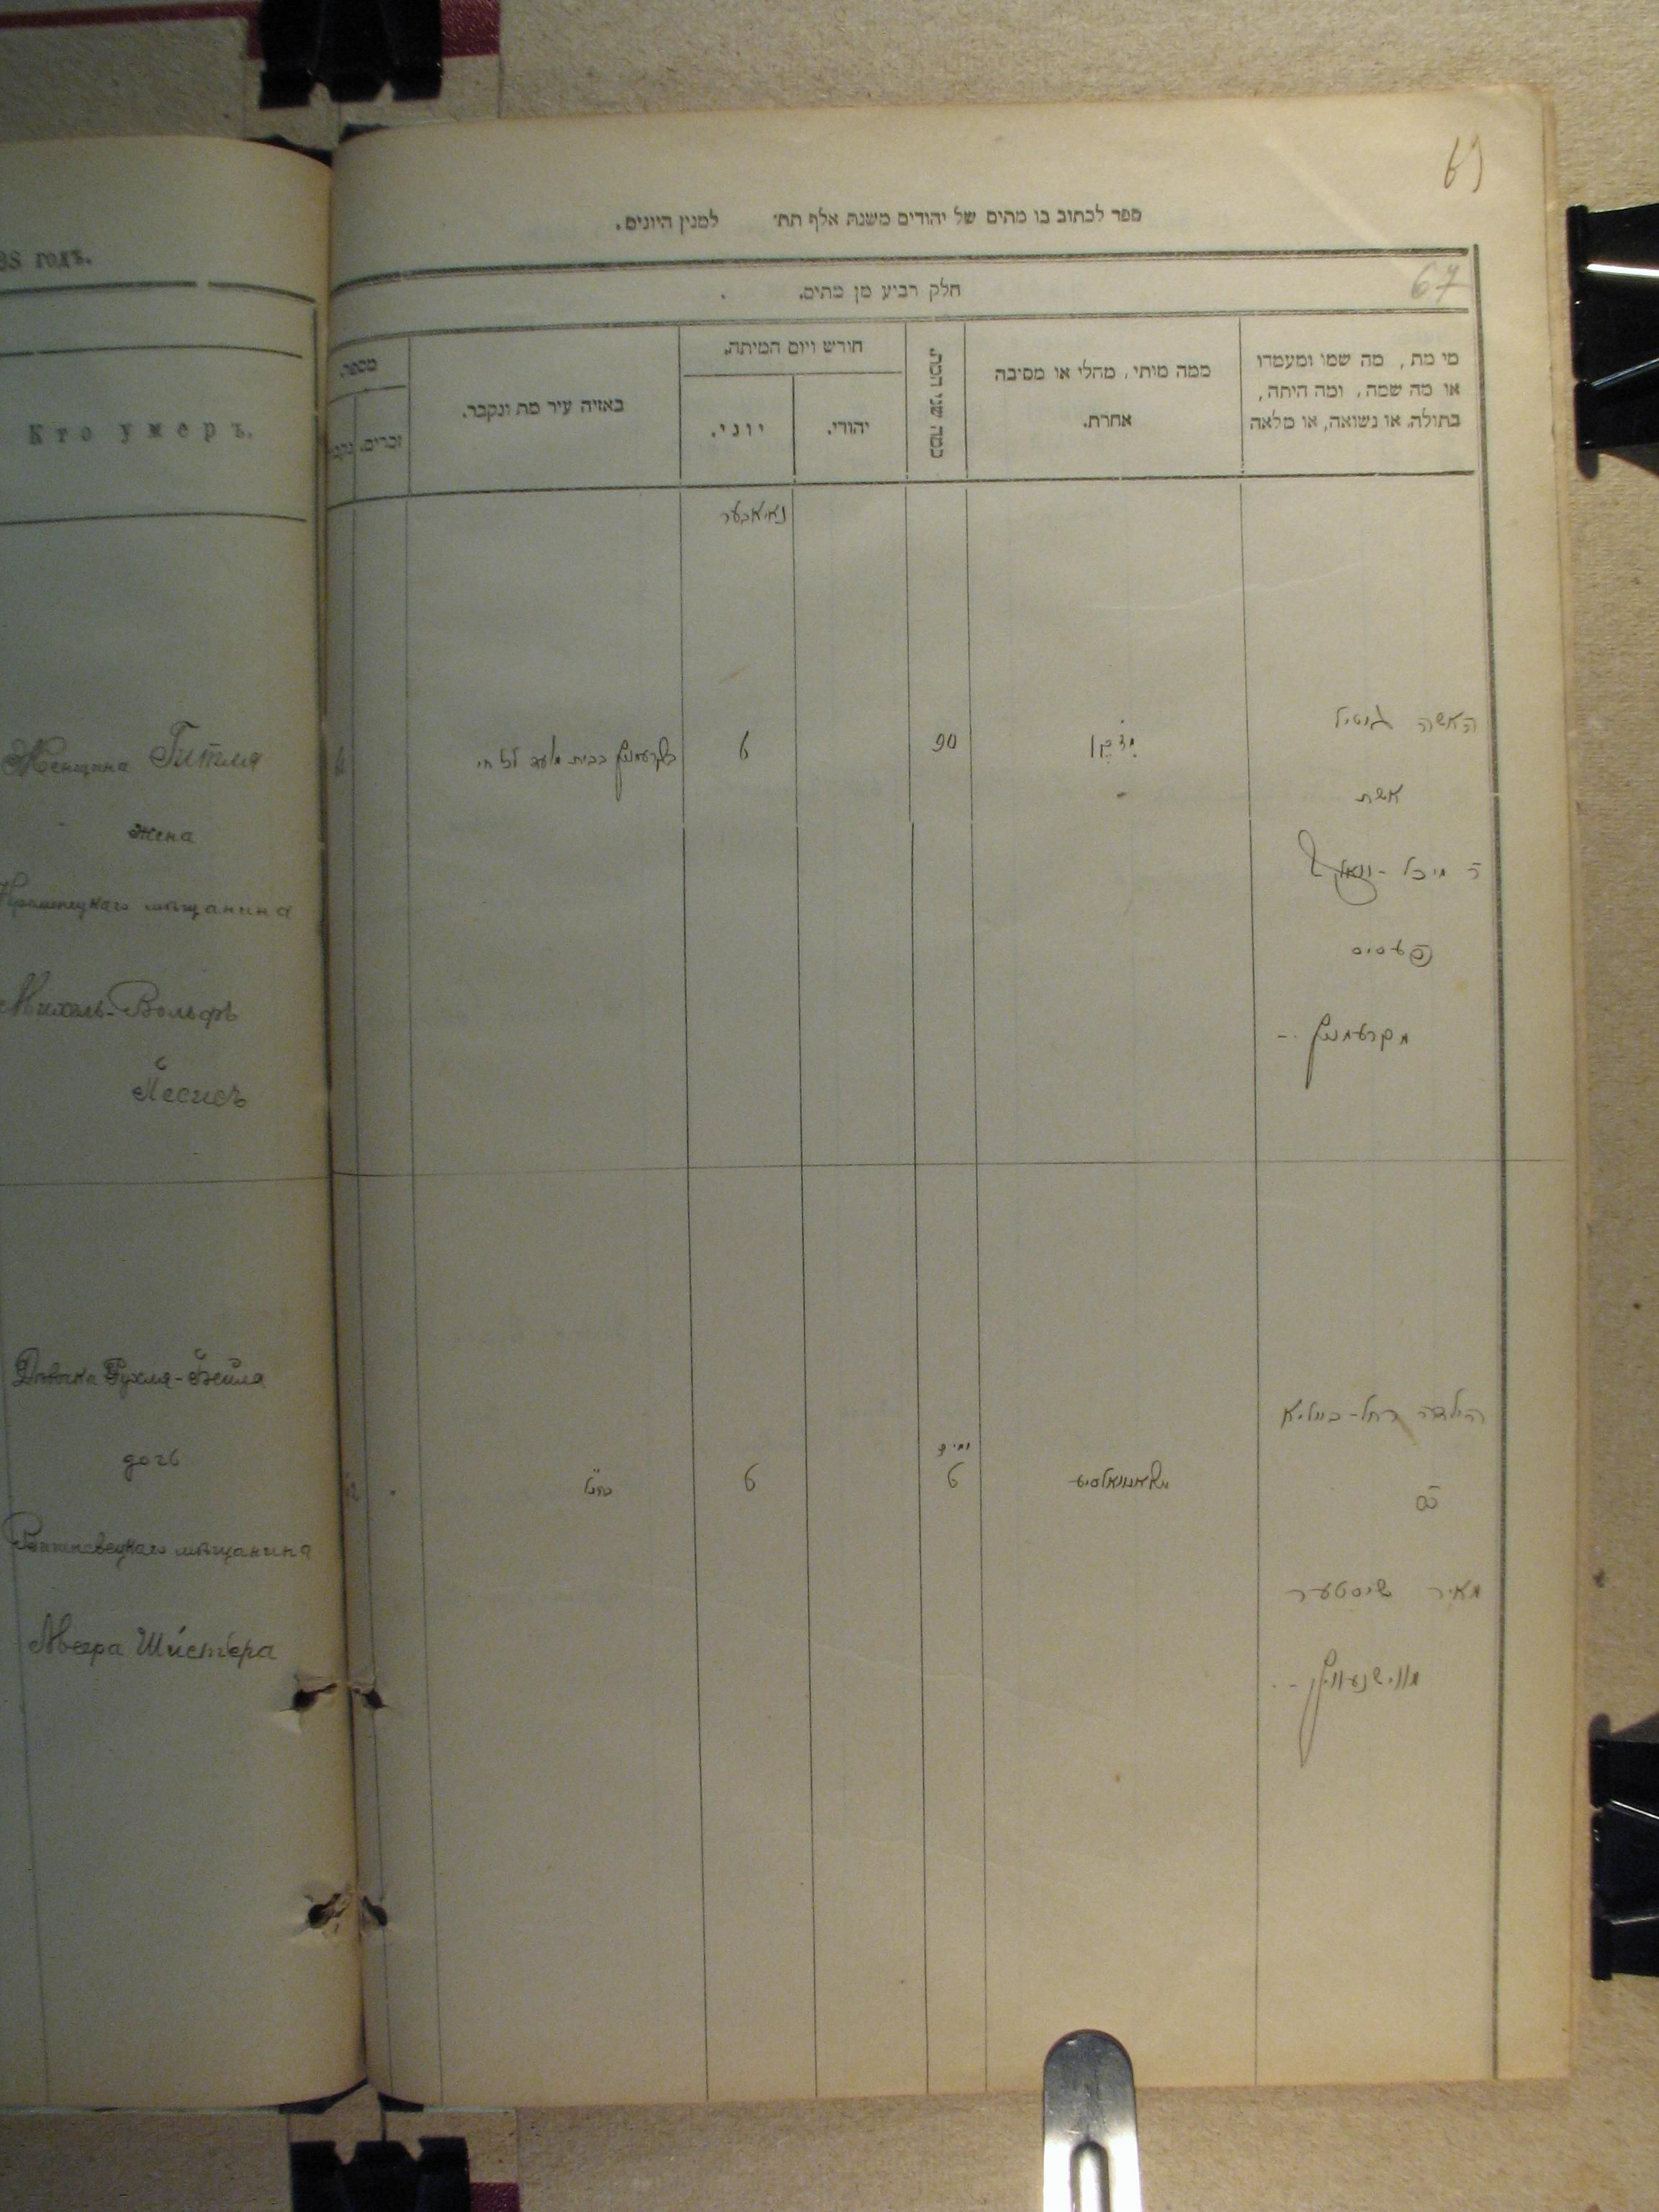 98 годъ.
Кто умеръ.
Женщина Гитля
жена
Кременецкаго мѣщанина
Михель-Вольфъ
Песисъ
Дѣвочка Рухля-Бейля
дочь
Вишневецкаго мѣщанина
Меера Шистера
69
ספר לכתוב בו מתים של יהודים משנת אלף תת׳ למנין היונים.
67
חלק רביע מן מתים.
מי מת, מה שמו ומעמדו
או מה שמה, ומה היתה,
בתולה, או נשואה, או מלאה
ממה מותי, מחלי או מסיבה
אחרת.
כמה שני המת.
חודש ויום המיתה.
יהודי.
יוני.
באיזה עיר מת ונקבר.
מספר.
זכרים.
נאיאבער
האשה גיטיל
אשת
ר׳ מיכל-וואלף
פעסיס
מקרעמניץ
מזקן
90
6
בקרעמניץ בבית מועד לכל חי
הילדה רחל-ביילא
בת
מאיר שיסטער
מווישנעוויץ
6
6
כנ״ל